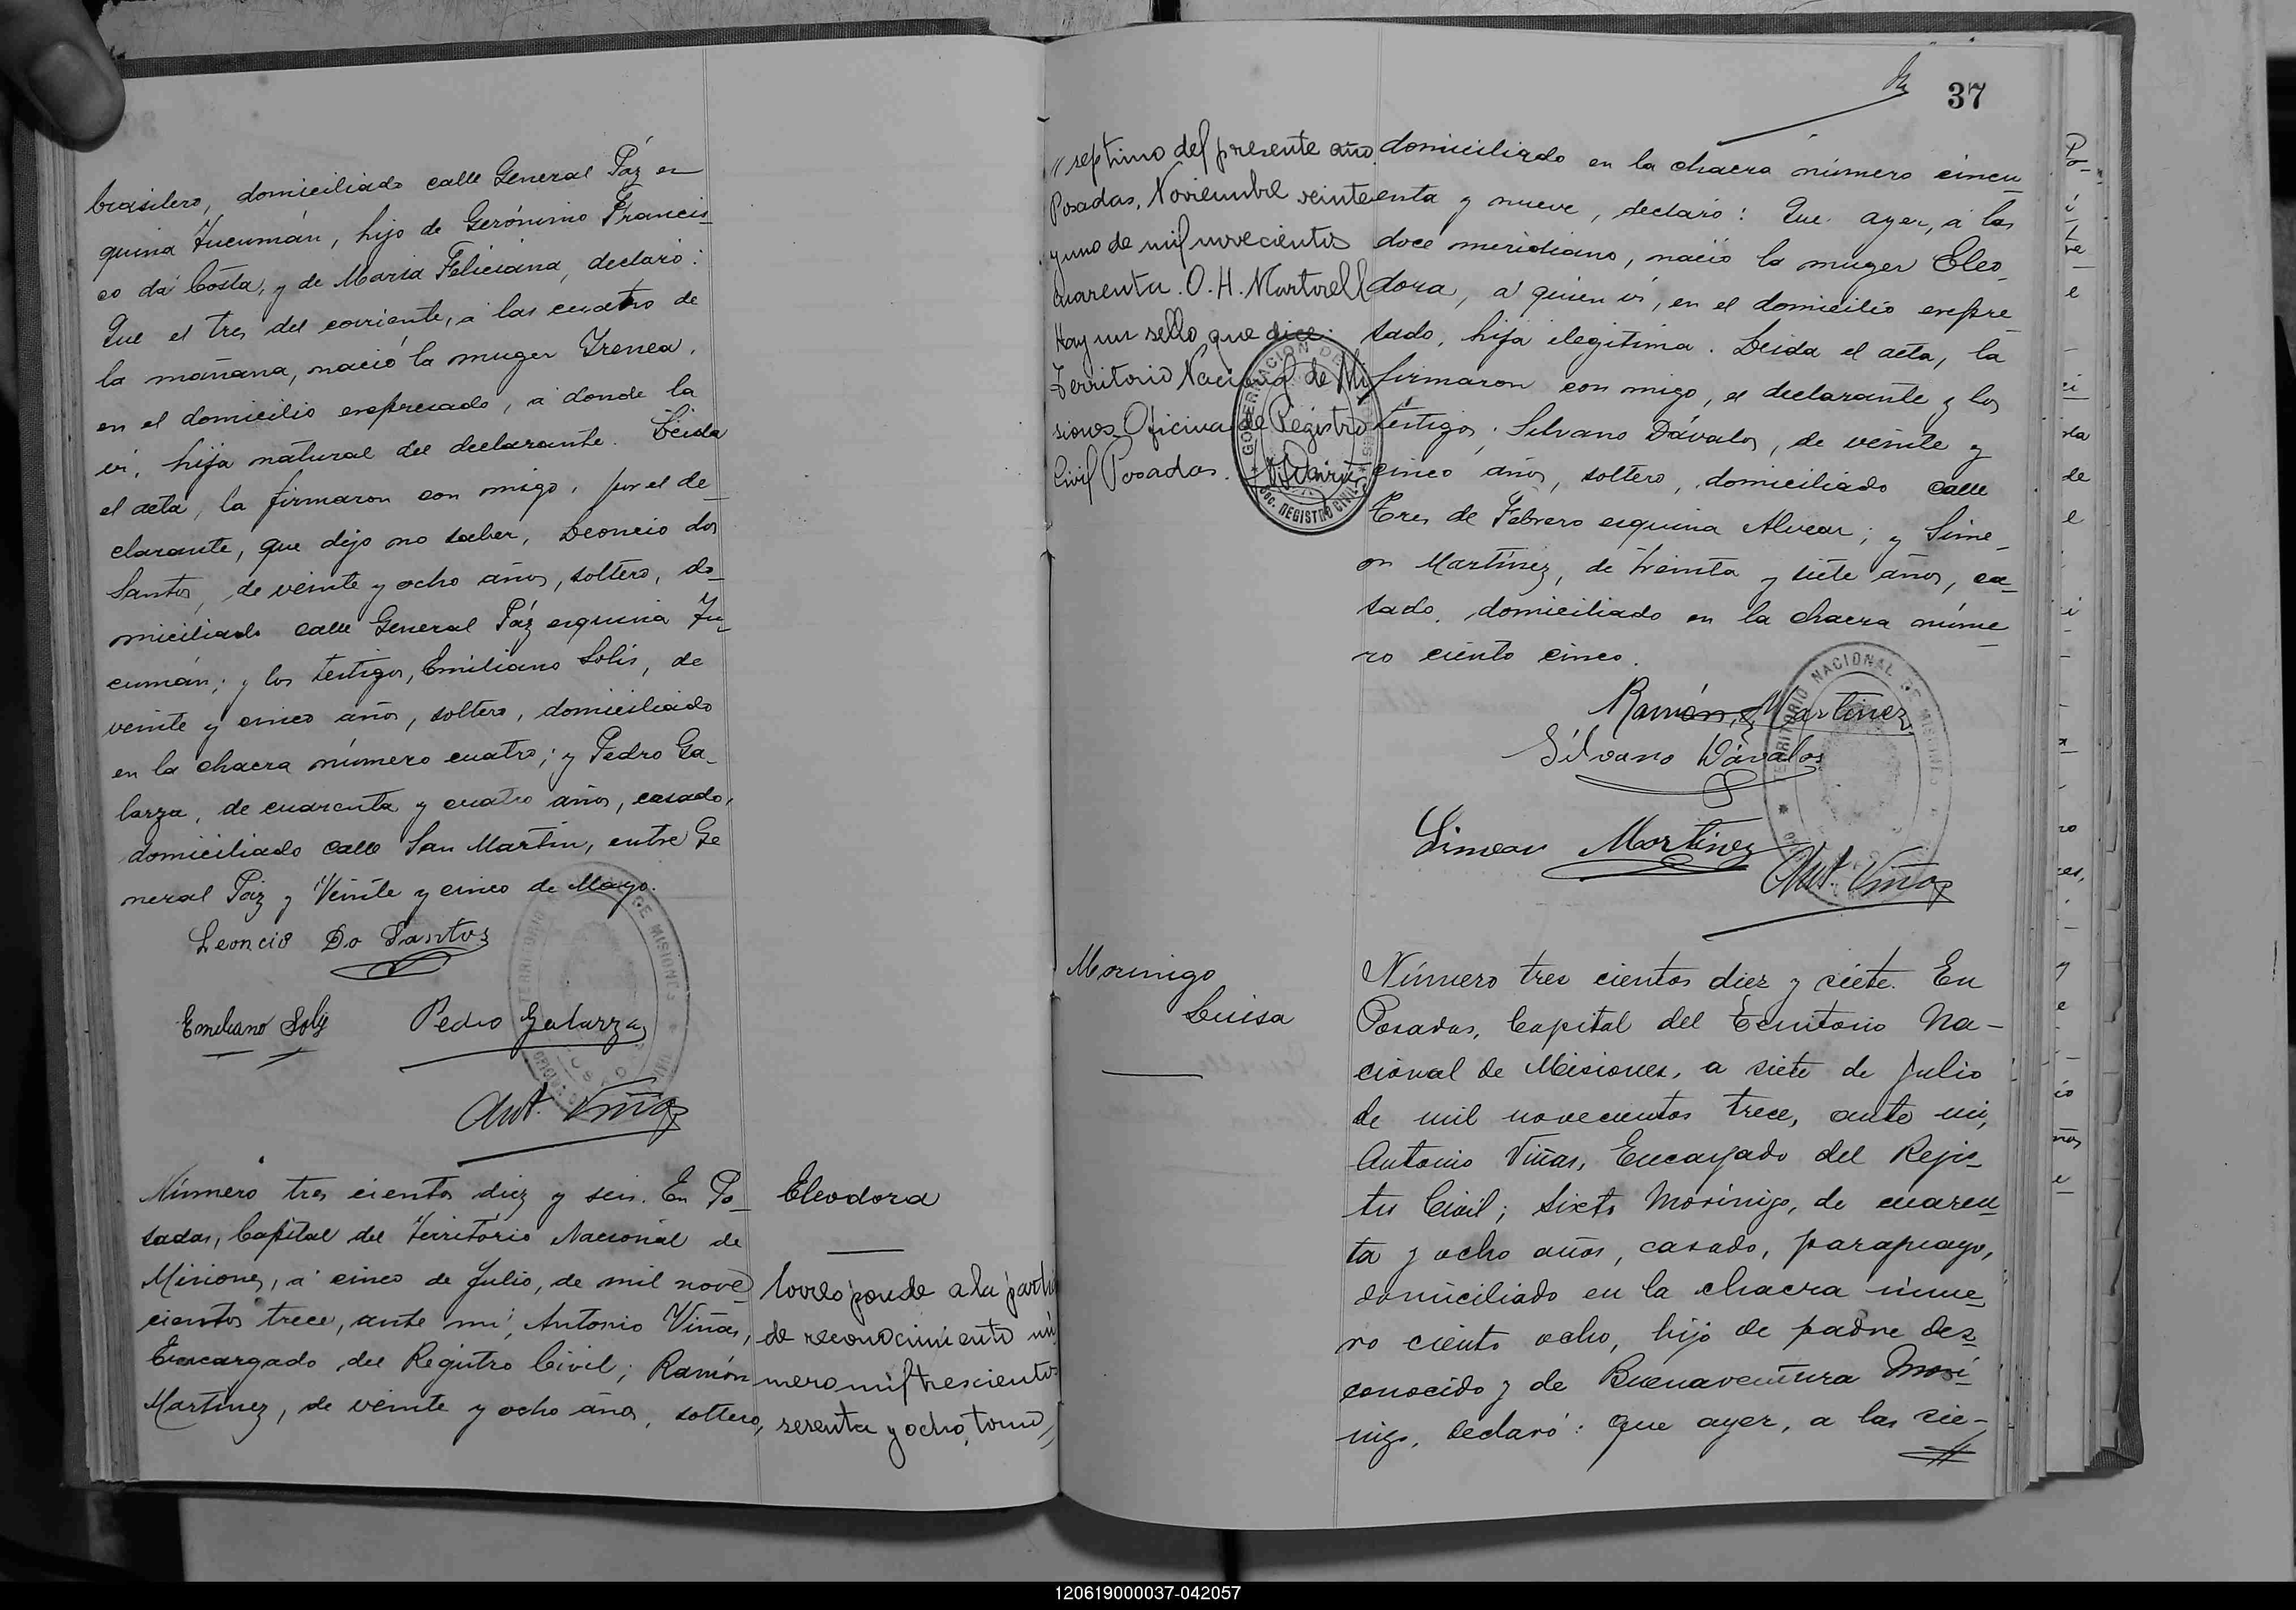 brasilero, domiciliado calle General Páz es
quina Tucumán, hijo de Gerónimo Francis
co da Costa, y de María Feliciana, declaró:
Que el tres del corriente, a las cuatro de
la mañana, nació la muger Irenea,
en el domicilio expresado, a donde la
vi, hija natural del declarante. Leida
el acta, la firmaron con migo, por el de
clarante, que dijo no saber, Leoncio dos
Santos, de veinte y ocho años, soltero, do
miciliado calle General Páz esquina Tu
cumán; y los testigos, Emiliano Solis, de
veinte y cinco años, soltero, domiciliado
en la chacra número cuatro; y Pedro Ga
larza, de cuarenta y cuatro años, casado,
domiciliado calle San Martin, entre Ge
neral Paz y Veinte y cinco de Mayo.
Leoncio Do Santos
Emiliano Solis Pedro Galarza
Ant. Viñas
Número tres cientos diez y seis. En Po
sadas, Capital del Territorio Nacional de
Misiones, a cinco de Julio, de mil nove
cientos trece, ante mi, Antonio Viñas,
Encargado del Registro Civil; Ramón
Martinez, de veinte y ocho años, soltero,
Eleodora
Corresponde a la parti
de reconocimiento nú
mero mil trescientos
sesenta y ocho, tomo //
37
// septimo del presente año.
Posadas, Noviembre veinte
y uno de mil novecientos
cuarenta. O. H. Martorell
Hay un sello que dice:
Territorio Nacional de Mi
siones Oficina de Registro
Civil Posadas.
GOBERNACION DE MISIONES
REGISTRO CIVIL
domiciliado en la chacra número cincu
enta y nueve, declaró: Que ayer, a las
doce meridiano, nació la muger Eleo
dora, a quien vi, en el domicilio expre
sado, hija ilegitima. Leida el acta, la
firmaron con migo, el declarante y los
testigos, Silvano Dávalos, de veinte y
cinco años, soltero, domiciliado calle
Tres de Febrero esquina Alvear; y Sime
on Martínez, de treinta y siete años, ca
sado, domiciliado en la chacra núme
ro ciento cinco.
Ramón Martinez
Silvano Dávalos
Simeon Martinez
Ant. Viñas
TERRITORIO NACIONAL DE MISIONES
Morinigo
Luisa
Número tres cientos diez y siete. En
Posadas, Capital del Territorio Na-
cional de Misiones, a siete de Julio
de mil novecientos trece, ante mi,
Antonio Viñas, Encargado del Regis
tro Civil; Sixto Morínigo, de cuaren
ta y ocho años, casado, paraguayo,
domiciliado en la chacra núme
ro ciento ocho, hijo de padre des
conocido y de Buenaventura Morí
nigo, declaró: Que ayer, a las sie-
120619000037-042057